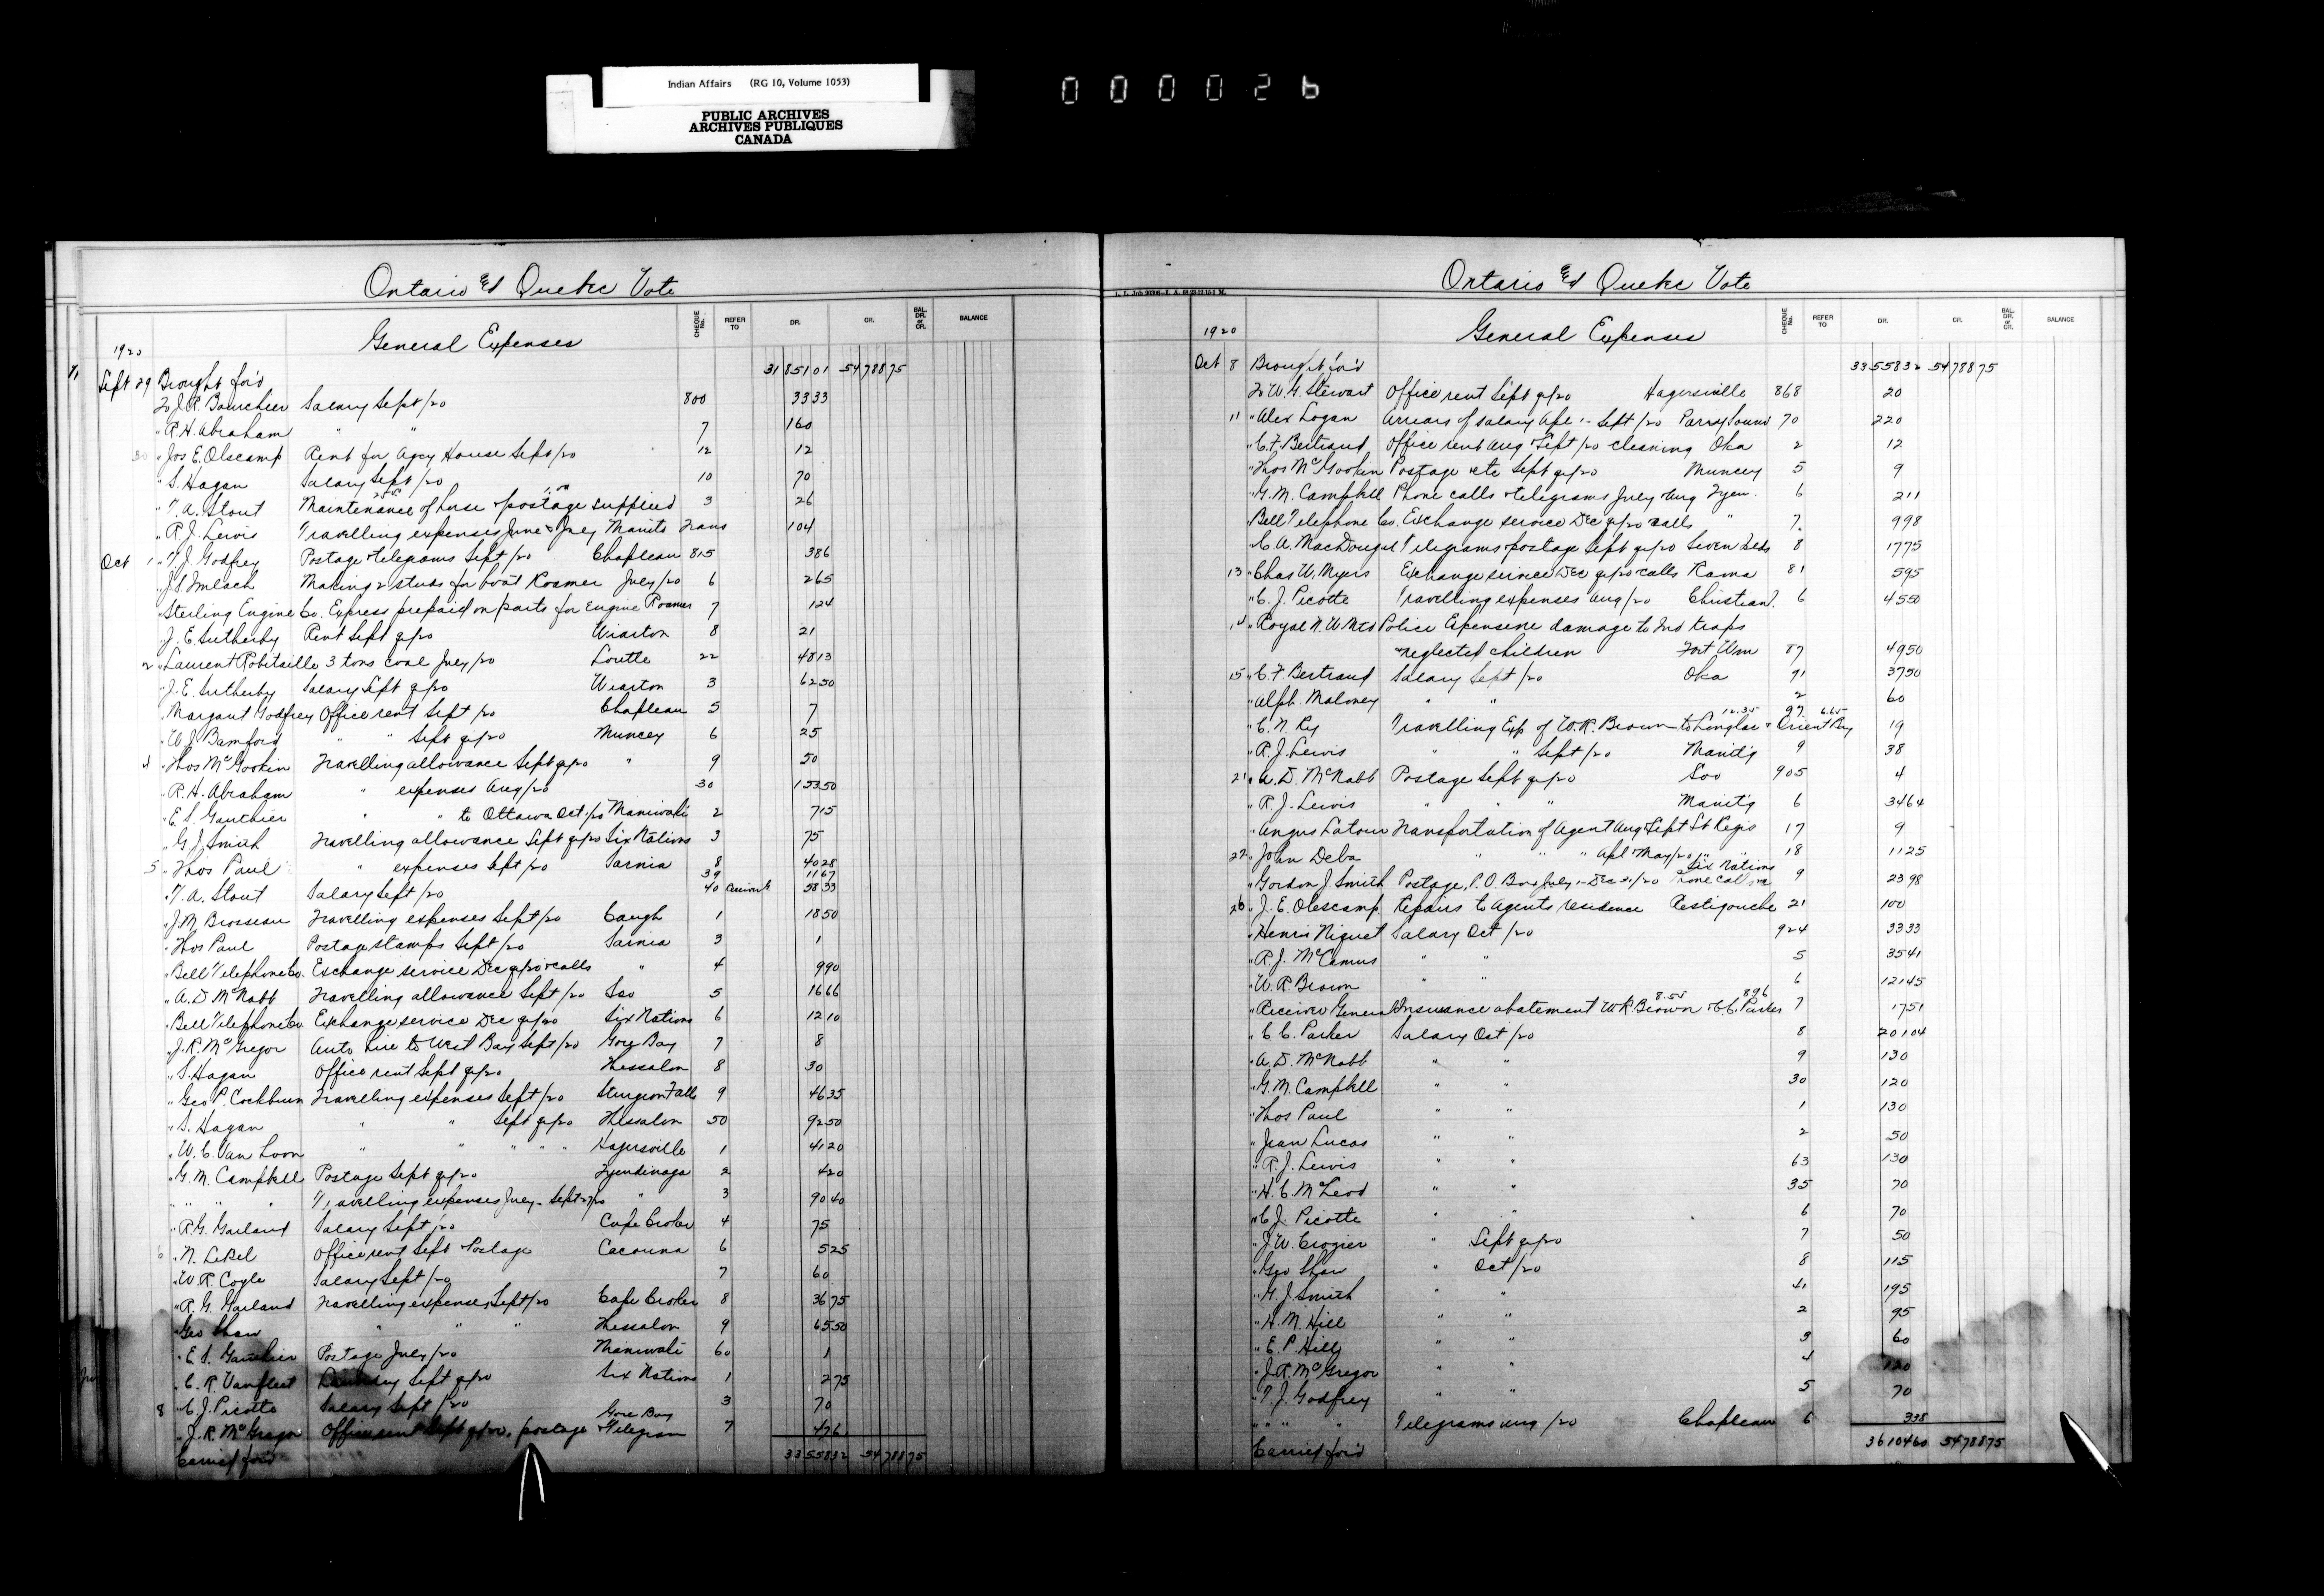 Indian Affairs (RG 10, Volume 1053)
PUBLIC ARCHIVES
ARCHIVES PUBLIQUES
CANADA
000026
Ontario & Quebec Vote
General Expenses
CHEQUE No. REFER TO DR. CR. BAL. DR. or CR. BALANCE
1920
Sept 29 Brought for'd 3185101 5478875
To J.R. Bourchier Salary Sept/20 800 3333
" R.H. Abraham " " 7 160
30 " Jos E. Olscamp Rent for Agcy House Sept/20 12 12
" S. Hagan Salary Sept/20 10 70
" T.A. Stout Maintenance of horse & postage supplied 3 26
" R.J. Lewis Travelling expenses June & July Manito 104
Oct 1 " T.J. Godfrey Postage & telegrams Sept/20 Chapleau 815 386
" J.S. Imlach Making 2 studs for boat Roamer July/20 6 265
" Sterling Engine Co. Express prepaid on parts for Engine Roamer 7 124
" J.E. Sutherby Rent Sept qr/20 Wiarton 8 21
2 " Laurent Robitaille 3 tons coal July/20 Lorette 22 4813
" J.E. Sutherby Salary Sept qr/20 Wiarton 3 6250
" Margaret Godfrey Office rent Sept/20 Chapleau 5 7
" W.J. Bamford " " Sept qr/20 Muncey 6 25
4 " Thos McGookin Travelling allowance Sept qr/20 " 9 50
" R.H. Abraham " expenses Aug/20 30 15350
" E.S. Gauthier " " to Ottawa Oct 1/20 Maniwaki 2 715
" G.J. Smith Travelling allowance Sept qr/20 Six Nations 3 75
5 " Thos Paul " expenses Sept/20 Sarnia 8 4028
39 1167
" T.A. Stout Salary Sept/20 40 5833
" J.M. Brosseau Travelling expenses Sept/20 Caugh 1 1850
" Thos Paul Postage stamps Sept/20 Sarnia 3 1
" Bell Telephone Co. Exchange service Dec qr/20 & calls " 4 990
" A.D. McNabb Travelling allowance Sept/20 Soo 5 1666
" Bell Telephone Co. Exchange service Dec qr/20 Six Nations 6 1210
" J.R. McGregor Auto hire to West Bay Sept/20 Gore Bay 7 8
" S. Hagan Office rent Sept qr/20 Thessalon 8 30
" Geo P. Cockburn Travelling expenses Sept/20 Sturgeon Falls 9 4635
" S. Hagan " " Sept qr/20 Thessalon 50 9250
" W.C. Van Loon " " " " Hagersville 1 4120
" G.M. Campbell Postage Sept qr/20 Tyendinaga 2 420
" " " Travelling expenses July - Sept 27/20 " 3 9040
" R.G. Garland Salary Sept/20 Cape Croker 4 75
6 " N. LeBel Office rent Sept & Postage Cacouna 6 525
" W.R. Coyle Salary Sept/20 7 60
" R.G. Garland Travelling expenses Sept/20 Cape Croker 8 3675
" Geo Shaw " " " Thessalon 9 6550
" E.S. Gauthier Postage July/20 Maniwaki 60 1
" C.R. Vanfleet Sept qr/20 Six Nations 1 275
8 " C.J. Picotte Salary Sept/20 3 70
" J.R. McGregor Office rent Sept qr/20, postage & telegram Gore Bay 7 476
Carried for'd 3355832 5478875
L. I. Job
Ontario & Quebec Vote
General Expenses
CHEQUE No. REFER TO DR. CR. BAL. DR. or CR. BALANCE
1920
Oct 8 Brought for'd 3355832 5478875
To W.G. Stewart Office rent Sept qr/20 Hagersville 868 20
11 " Alex Logan Arrears of salary Apl 1 - Sept/20 Parry Sound 70 220
" C.F. Bertrand Office rent Aug & Sept/20 cleaning Oka 2 12
" Thos McGookin Postage etc Sept qr/20 Muncey 5 9
" G.M. Campbell Phone calls & telegrams July & Aug Tyen. 6 211
" Bell Telephone Co. Exchange service Dec qr/20 calls " 7 998
" C.A. MacDougal Telegrams & postage Sept qr/20 Seven Isds 8 1775
13 " Chas W. Myers Exchange service Dec qr/20 & calls Rama 81 595
" C.J. Picotte Travelling expenses Aug/20 Christian I. 6 4550
14 " Royal N.W. Mtd Police Expense re damage to Ind traps
& neglected children Fort Wm 87 4950
15 " C.F. Bertrand Salary Sept/20 Oka 91 3750
" Alph. Maloney " " 2 60
" C.N. Ry Travelling Exp of W.R. Brown to Longlac 12.35 & Orient Bay 6.65 97 19
" R.J. Lewis " " Sept/20 Manit'g 9 38
21 " A.D. McNabb Postage Sept qr/20 Soo 905 4
" R.J. Lewis " " " Manit'g 6 3464
" Angus Latour Transportation of Agent Aug & Sept St Regis 17 9
22 " John Deba " " " Apl & May/20 " " 18 1125
" Gordon J. Smith Postage, P.O. Box July 1 - Dec 31/20 Phone calls Six Nations 9 2398
26 " J.E. Olescamp Repairs to Agents residence Restigouche 21 100
" Henri Niquet Salary Oct/20 924 3333
" R.J. McCamus " " 5 3541
" W.R. Brown " " 6 12145
" Receiver General Insurance abatement W.R. Brown 8.55 & C.C. Parker 8.96 7 1751
" C.C. Parker Salary Oct/20 8 20104
" A.D. McNabb " " 9 130
" G.M. Campbell " " 30 120
" Thos Paul " " 1 130
" Jean Lucas " " 2 50
" R.J. Lewis " " 63 130
" H.C. McLeod " " 35 70
" C.J. Picotte " " 6 70
" J.W. Crozier " Sept qr/20 7 50
" Geo Shaw " Oct/20 8 115
" G.J. Smith " " 41 195
" H.M. Hill " " 2 95
" E.P. Hill " " 3 60
" J.R. McGregor " " 4 120
" T.J. Godfrey " " 5 70
" " " Telegrams Aug/20 Chapleau 6 338
Carried for'd 3610460 5478875